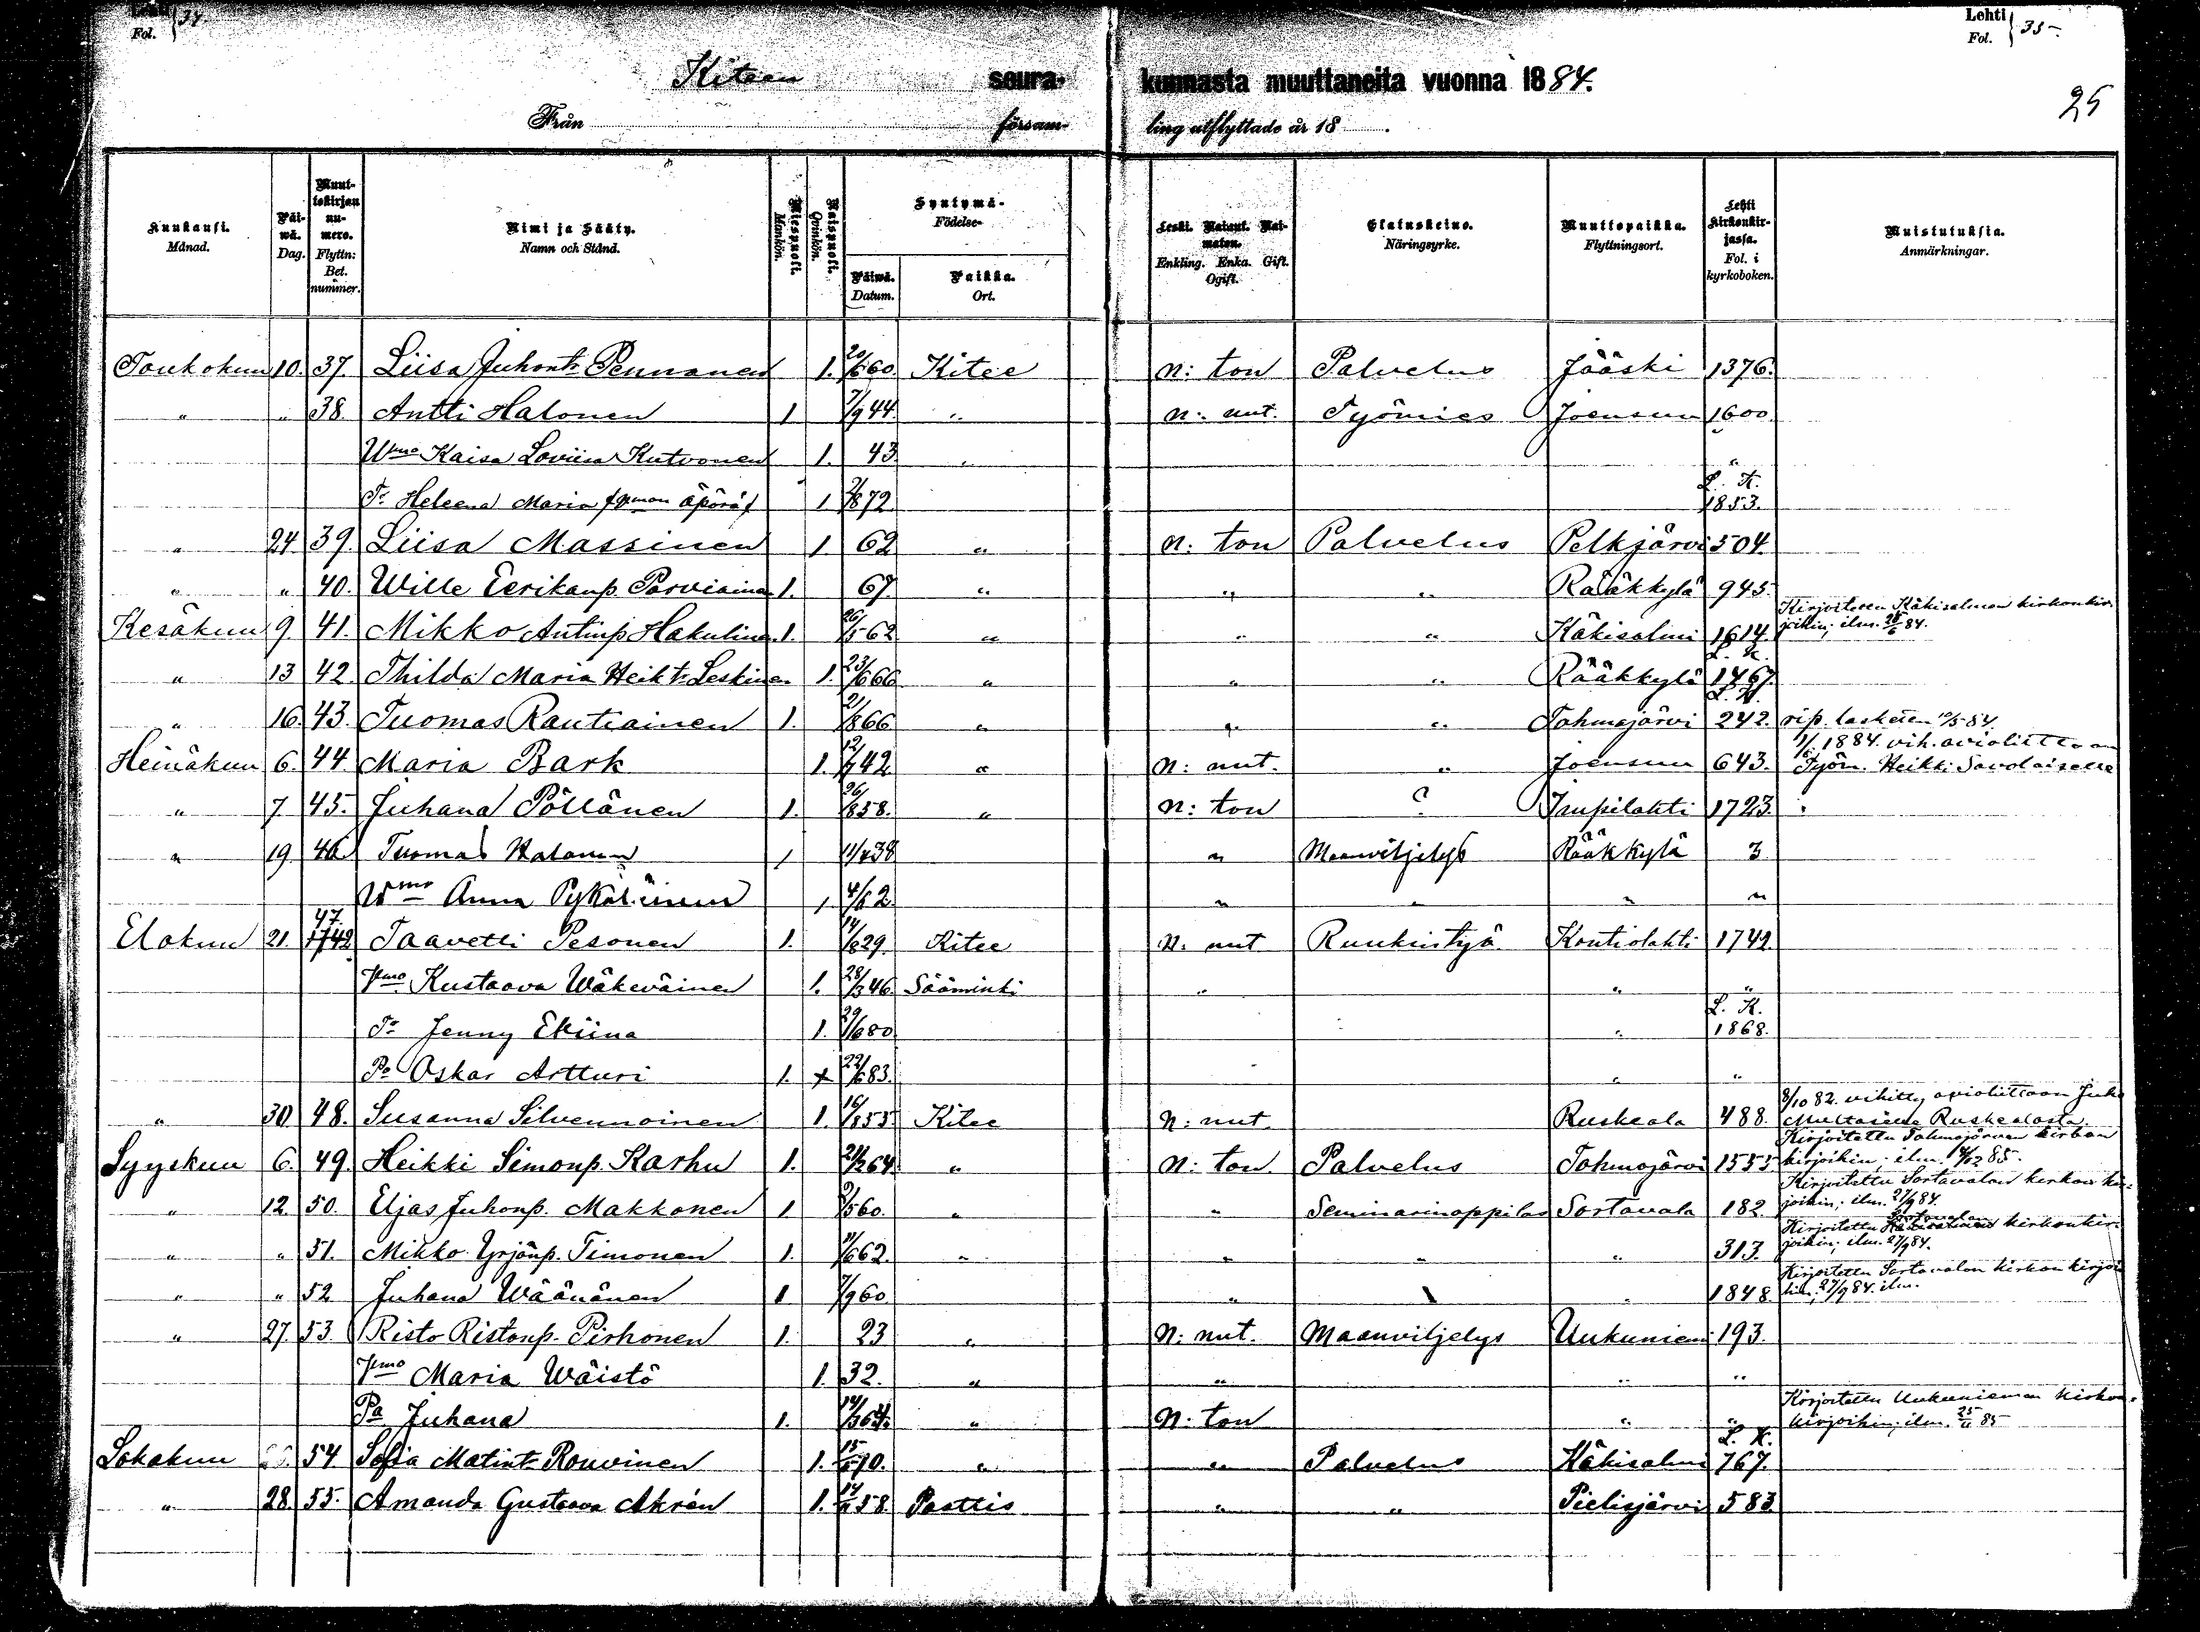 Lehti Fol. } 34
Lehti Fol. } 35
Kiteen seurakunnasta muuttaneita vuonna 1884.
25
Från församling utflyttade år 18 .
Kuukausi. Månad.
Päiwä. Dag.
Muuttokirjan numero. Flyttn: Bet. nummer.
Nimi ja Sääty. Namn och Stånd.
Miespuoli. Mankön.
Naispuoli. Qvinkön.
Syntymä- Födelse-
Päiwä. Datum.
Paikka. Ort.
Leski. Nainut. Naimaton. Enkling. Enka. Gift. Ogift.
Elatuskeino. Näringsyrke.
Muuttopaikka. Flyttningsort.
Lehti kirkonkirjassa. Fol. i kyrkoboken.
Muistutuksia. Anmärkningar.
Toukokuu 10. 37. Liisa Juhont. Pennanen 1. 20/6 60. Kitee n: ton Palvelus Jääski 1376.
" " 38. Antti Halonen 1 7/9 44. " n: nut. Työmies Joensuu 1600
Wmo Kaisa Loviisa Kutvonen 1. 43. " "
Tr Heleena Maria äpärä 1 2/8 72. L. K. 1853.
" 24 39. Liisa Massinen 1. 62 " n: ton Palvelus Pelkjärvi 504
" " 40. Wille Eerikanp. Parviainen 1. 67. " " " Rääkkylä 945.
Kesäkuu 9 41. Mikko Antinp. Hakulinen 1. 26/5 62 " " " Käkisalmi 1614. Kirjoitettu Käkisalmen kirkonkirjoihin; ilm. 28/6 84.
" 13 42. Thilda Maria Heikt. Leskinen 1. 23/6 66 " " " Rääkkylä L. K. 1467.
" 16. 43. Tuomas Rautiainen 1. 2/8 66 " " " Tohmajärvi L. K. 242. rip. lasketen 10/5 84
Heinäkuu 6. 44. Maria Bark 1. 12/7 42 " n: nut. " Joensuu 643. 1/6 1884. vih. avioliittoon Työm. Heikki Savolaiselle
" 7. 45. Juhana Pöllänen 1. 26/8 58. " n: ton ? Impilahti 1723.
" 19 46 Tuomas Halonen 1 11/4 38 " Maanviljelys Rääkkylä 3
Wmo Anna Pykäläinen 1 4/6 2 " " " "
Elokuu 21. 47. Taavetti Pesonen 1. 14/6 29. Kitee n: nut Ruukintyö Kontiolahti 1742
Wmo Kustaava Wäkeväinen 1. 28/3 46. Sääminki " " "
Tr Jenny Eliina 1. 29/6 80 " L. K. 1868.
Pa Oskar Artturi 1. 22/6 83. " "
" 30 48. Susanna Silvennoinen 1. 16/8 55 Kitee n: nut. Ruskeala 488. 8/10 82. vihitty avioliittoon Juho Multaselle Ruskealasta.
Syyskuu 6. 49. Heikki Simonp. Karhu 1. 21/2 64. " n: ton. Palvelus Tohmajärvi 1555 Kirjoitettu Tohmajärven kirkonkirjoihin; ilm. 14/12 85.
" 12. 50. Eljas Juhonp. Makkonen 1. 2/5 60. " " Seminarinoppilas Sortavala 182 Kirjoitettu Sortavalan kirkonkirjoihin; ilm. 27/9 84.
" " 51. Mikko Yrjönp. Timonen 1. 11/6 62. " " " " 313. Kirjoitettu Sortavalan kirkonkirjoihin; ilm. 27/9 84.
" " 52 Juhana Wäänänen 1 7/9 60 " " 1848. Kirjoitettu Sortavalan kirkonkirjoihin; 27/9 84. ilm.
" 27. 53 Risto Ristonp. Pirhonen 1. 23 " n: nut. Maanviljelys Uukuniemi 193.
Wmo Maria Wäistö 1. 32. " " " "
Pa Juhana 1. 14/3 64. " n: ton " " Kirjoitettu Uukuniemen kirkonkirjoihin; ilm. 25/11 85
Lokakuu 54 Sofia Matint. Rouvinen 1. 15/5 70. " " Palvelus Käkisalmi L. K. 767.
" 28. 55. Amanda Gustaava Akrén 1. 14/11 58. Pasttis " " Pielisjärvi 583.